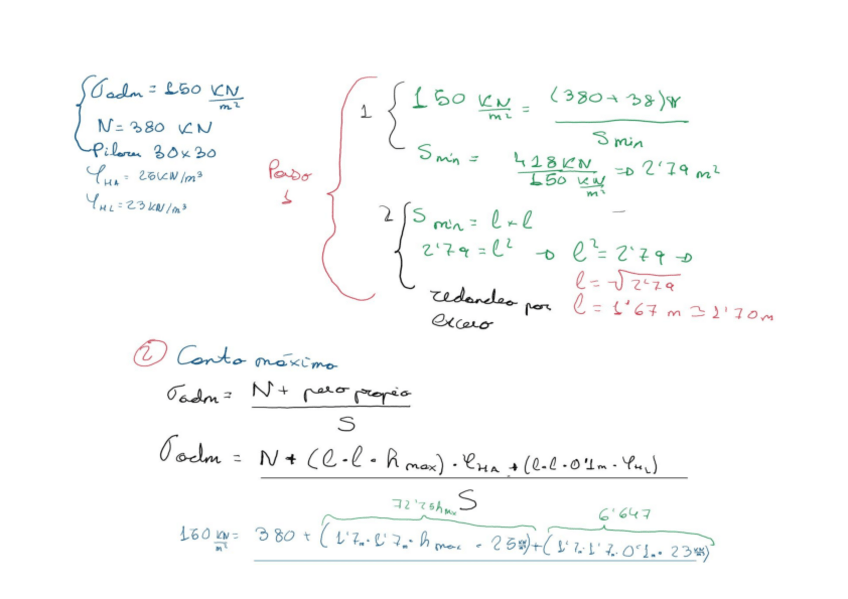 σadm = 150 KN/m²
N = 380 KN
Pilares 30x30
γHA = 25KN/m³
γHL = 23 KN/m³
Paso 1
1
150 KN/m² = (380 + 38)
Smin
Smin = 418KN / 150 KN/m² => 2'79 m²
2
Smin = l × l
2'79 = l² → l² = 2'79 →
l = √2'79
redondeo por exceso
l = 1'67 m ≃ 1'70 m
② Canto máximo
σadm = N + peso propio
S
σadm = N + (l · l · h max) · γHA + (l·l·0'1m · γHL)
S
72'25hmax
6'647
150 KN/m² = 380 + (1'7m · 1'7m · h max · 25) + (1'7·1'7·0'1m · 23)